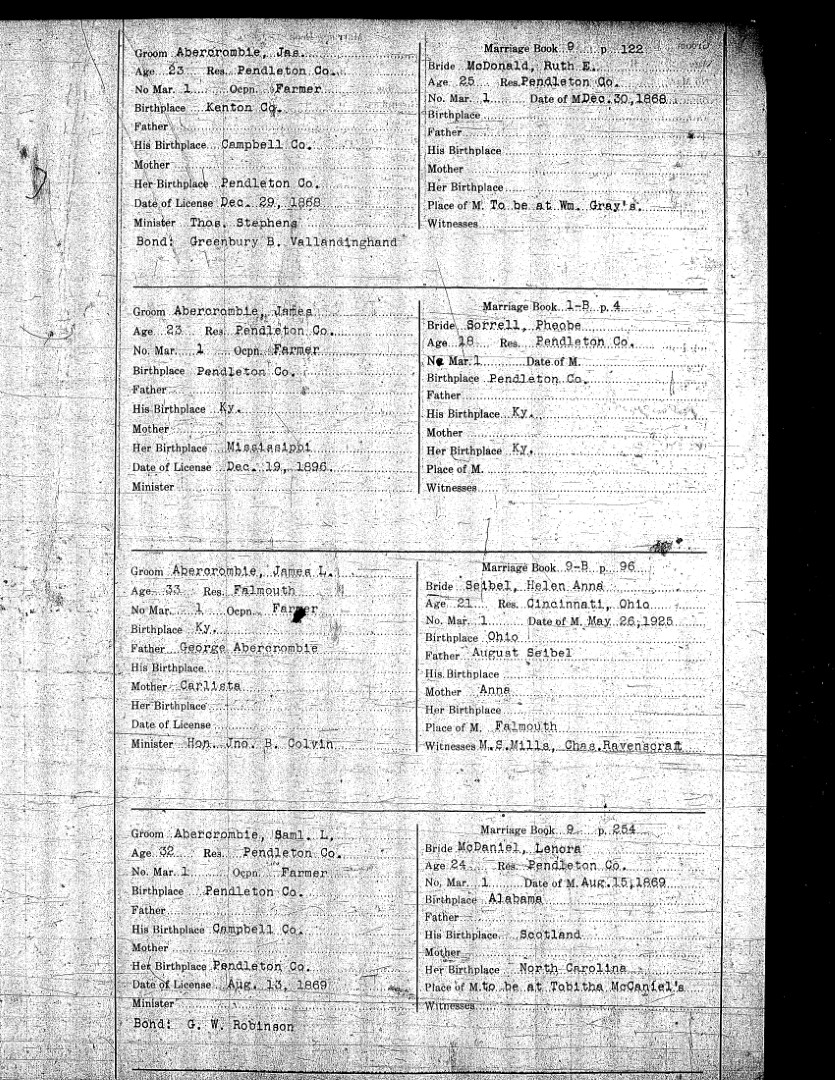 Groom Abercrombie, Jas.
Age 23 Res. Pendleton Co.
No Mar. 1 Ocpn. Farmer
Birthplace Kenton Co.
Father
His Birthplace Campbell Co.
Mother
Her Birthplace Pendleton Co.
Date of License Dec. 29, 1868
Minister Thos. Stephens
Bond: Greenbury B. Vallandinghand
Marriage Book 9 p. 122
Bride McDonald, Ruth E.
Age 25 Res. Pendleton Co.
No. Mar. 1 Date of M. Dec. 30, 1868
Birthplace
Father
His Birthplace
Mother
Her Birthplace
Place of M. To be at Wm. Gray's.
Witnesses
Groom Abercrombie, James
Age 23 Res. Pendleton Co.
No. Mar. 1 Ocpn. Farmer
Birthplace Pendleton Co.
Father
His Birthplace Ky.
Mother
Her Birthplace Mississippi
Date of License Dec. 19, 1896
Minister
Marriage Book 1-B p. 4
Bride Sorrell, Pheobe
Age 18 Res. Pendleton Co.
No Mar. 1 Date of M.
Birthplace Pendleton Co.
Father
His Birthplace Ky.
Mother
Her Birthplace Ky.
Place of M.
Witnesses
Groom Abercrombie, James L.
Age 33 Res. Falmouth
No Mar. 1 Ocpn. Farmer
Birthplace Ky.
Father George Abercrombie
His Birthplace
Mother Carlista
Her Birthplace
Date of License
Minister Hon. Jno. B. Colvin
Marriage Book 9-B p. 96
Bride Seibel, Helen Anna
Age 21 Res. Cincinnati, Ohio
No. Mar. 1 Date of M. May 26, 1925
Birthplace Ohio
Father August Seibel
His Birthplace
Mother Anna
Her Birthplace
Place of M. Falmouth
Witnesses M.S.Mills, Chas.Ravenscraft
Groom Abercrombie, Saml. L.
Age 32 Res. Pendleton Co.
No. Mar. 1 Ocpn. Farmer
Birthplace Pendleton Co.
Father
His Birthplace Campbell Co.
Mother
Her Birthplace Pendleton Co.
Date of License Aug. 13, 1869
Minister
Bond: G. W. Robinson
Marriage Book 9 p. 254
Bride McDaniel, Lenora
Age 24 Res. Pendleton Co.
No. Mar. 1 Date of M. Aug. 15, 1869
Birthplace Alabama
Father
His Birthplace Scotland
Mother
Her Birthplace North Carolina
Place of M. to be at Tobitha McCaniel's
Witnesses